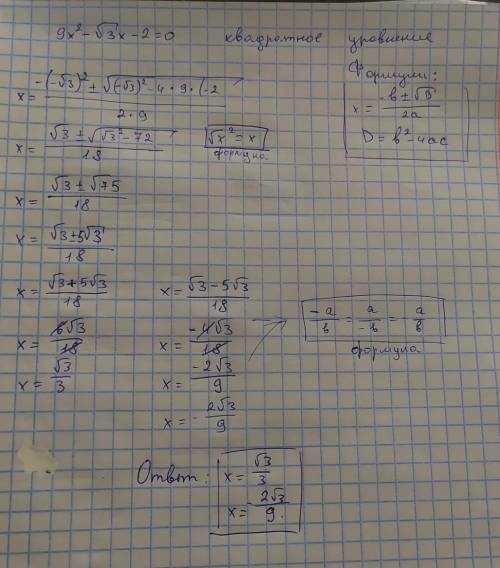 9x² - √3x - 2 = 0 квадратное уровнение
Формули:
x = (-b ± √D)/2a
D = b² - 4ac
x = (-(-√3)² ± √((-√3)² - 4 * 9 * (-2))/(2 * 9)
x = (√3 ± √(√3² - 72))/18
√x² = x
формула
x = (√3 ± √75)/18
x = (√3 ± 5√3)/18
x = (√3 + 5√3)/18 x = (√3 - 5√3)/18
x = 6√3/18 x = -4√3/18
-a/b = a/-b = - a/b
формула
x = √3/3 x = -2√3/9
x = - 2√3/9
Ответ: x = √3/3
x = - 2√3/9.